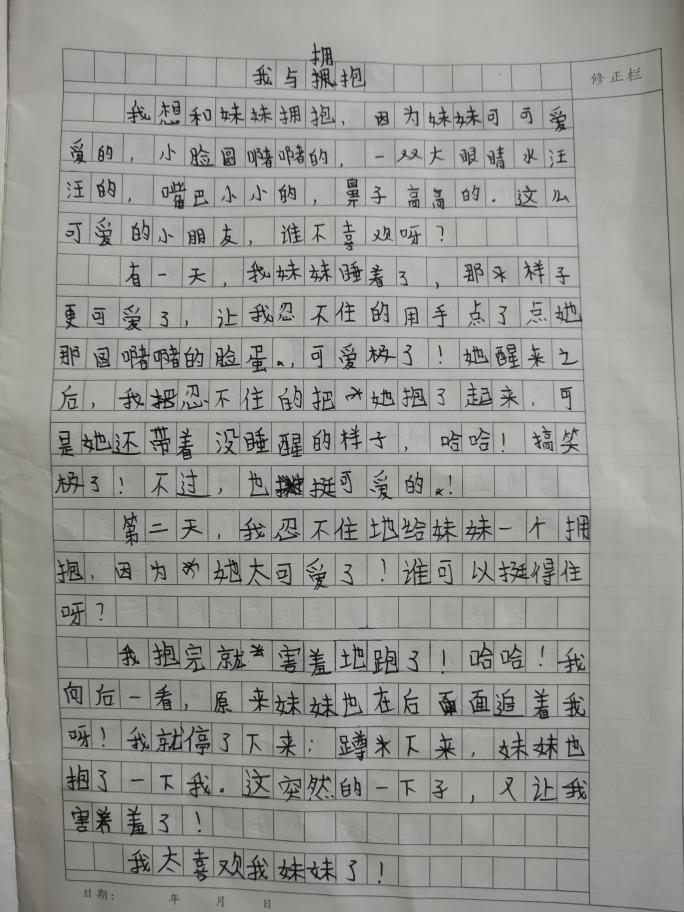 我与拥抱
修正栏
我想和妹妹拥抱，因为妹妹可可爱
爱的，小脸圆嘟嘟的，一双大眼睛水汪
汪的，嘴巴小小的，鼻子高高的。这么
可爱的小朋友，谁不喜欢呀？
有一天，我妹妹睡着了，那样子
更可爱了，让我忍不住的用手点了点她
那圆嘟嘟的脸蛋，可爱极了！她醒来之
后，我忍不住的把她抱了起来，可
是她还带着没睡醒的样子，哈哈！搞笑
极了！不过，也挺可爱的！
第二天，我忍不住地给妹妹一个拥
抱，因为她太可爱了！谁可以挺得住
呀？
我抱完就害羞地跑了！哈哈！我
向后一看，原来妹妹也在后面追着我
呀！我就停了下来；蹲下来，妹妹也
抱了一下我。这突然的一下子，又让我
害羞了！
我太喜欢我妹妹了！
日期： 年 月 日